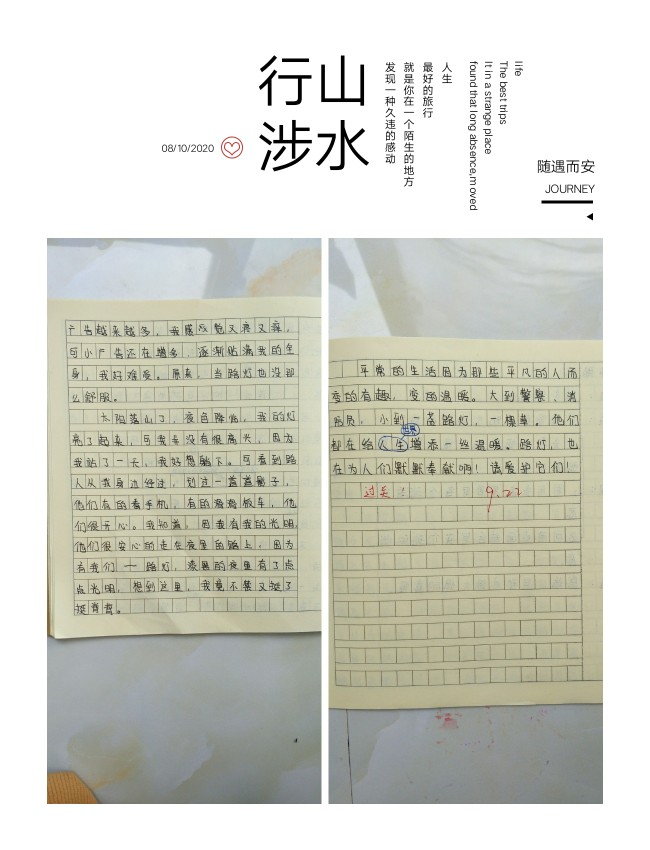 行山
涉水
08/10/2020
人生
最好的旅行
就是你在一个陌生的地方
发现一种久违的感动
life
The best trips
It in a strange place
found that long absence,moved
随遇而安
JOURNEY
广告越来越多，我感觉又痒又痒，
可小广告还在增多，逐渐贴满我的全
身，我好难受。原来，当路灯也没那
么舒服。
太阳落山了，夜白降临，我的灯
亮了起来，可我来没有很高兴，因为
我站了一天，我好想躺下。可看到路
人从我身边经过，划过一首首影子，
他们有的看手机，有的弯弯板车，他
们很开心。我知道，因我有我的光明
他们很安心的走在夜里的路上，因为
有我们——路灯，漆黑的夜里有了点
点光明，想到这里，我竟不禁又挺了
挺背脊。
平常的生活因为那些平凡的人而
变的有趣，变的温暖。大到警察、消
防员，小到一盏路灯，一棵草。他们
都在给人生增添一丝温暖。路灯，也
世界
在为人们默默奉献啊！请爱护它们！
过关！
9.22